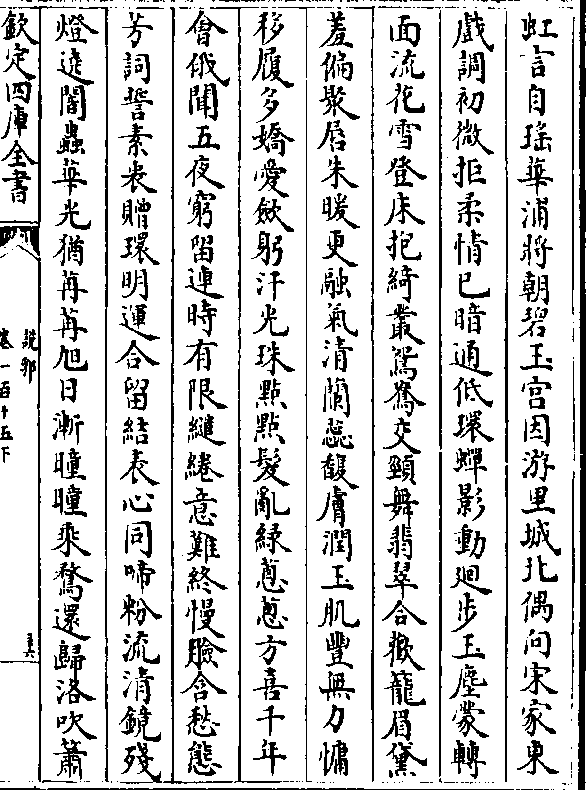 虹言自瑤華浦將朝碧玉宫因游里城北偶向宋家東
戲調初微拒柔情已暗通低環蟬影動廻步玉塵蒙轉
面流花雪登床抱綺叢鴛鴦交頸舞翡翠合歡籠眉黛
羞偏聚唇朱暖更融氣清蘭蕊馥膚潤玉肌豐無力慵
移履多嬌愛斂躬汗光珠點點髮亂緑葱葱方喜千年
㑹俄聞五夜窮留連時有限繾綣意難終慢臉含愁態
芳詞誓素衷贈環明運合留結表心同啼粉流清鏡殘
燈遶闇蟲華光猶苒苒旭日漸曈曈乗鶩還歸洛吹簫
欽定四庫全書
說郛
卷一百十五下